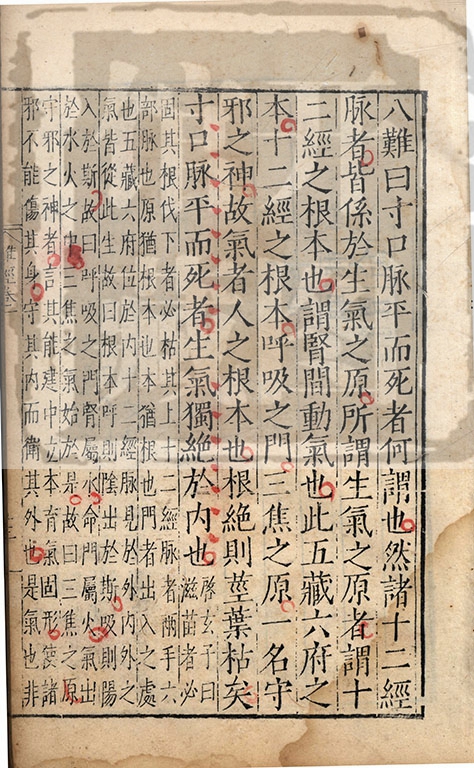 八難曰寸口脈平而死者何謂也然諸十二經
脈者皆係於生氣之原所謂生氣之原者謂十
二經之根本也謂腎間動氣也此五藏六府之
本十二經之根本呼吸之門三焦之原一名守
邪之神故氣者人之根本也根絕則莖葉枯矣
寸口脈平而死者生氣獨絕於內也
啓玄子曰
滋苗者必
固其根伐下者必枯其上十二經脈者兩手六
部脈也原猶根本也本猶根也門者出入之處
也五藏六府位於內十二經脈見於外內外之
氣皆從此生故曰根本呼則陰出於斯吸則陽
入於斯故曰呼吸之門腎屬水命門屬火氣出
於水火之中三焦之氣始於是故曰三焦之原
守邪之神者言其能建中立本育氣固形使諸
邪不能傷其身守其內而衛其外也是氣也非
難經卷